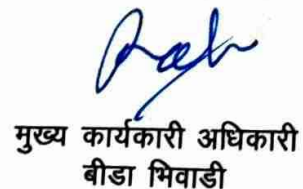 मुख्य कार्यकारी अधिकारी
बीडा भिवाडी